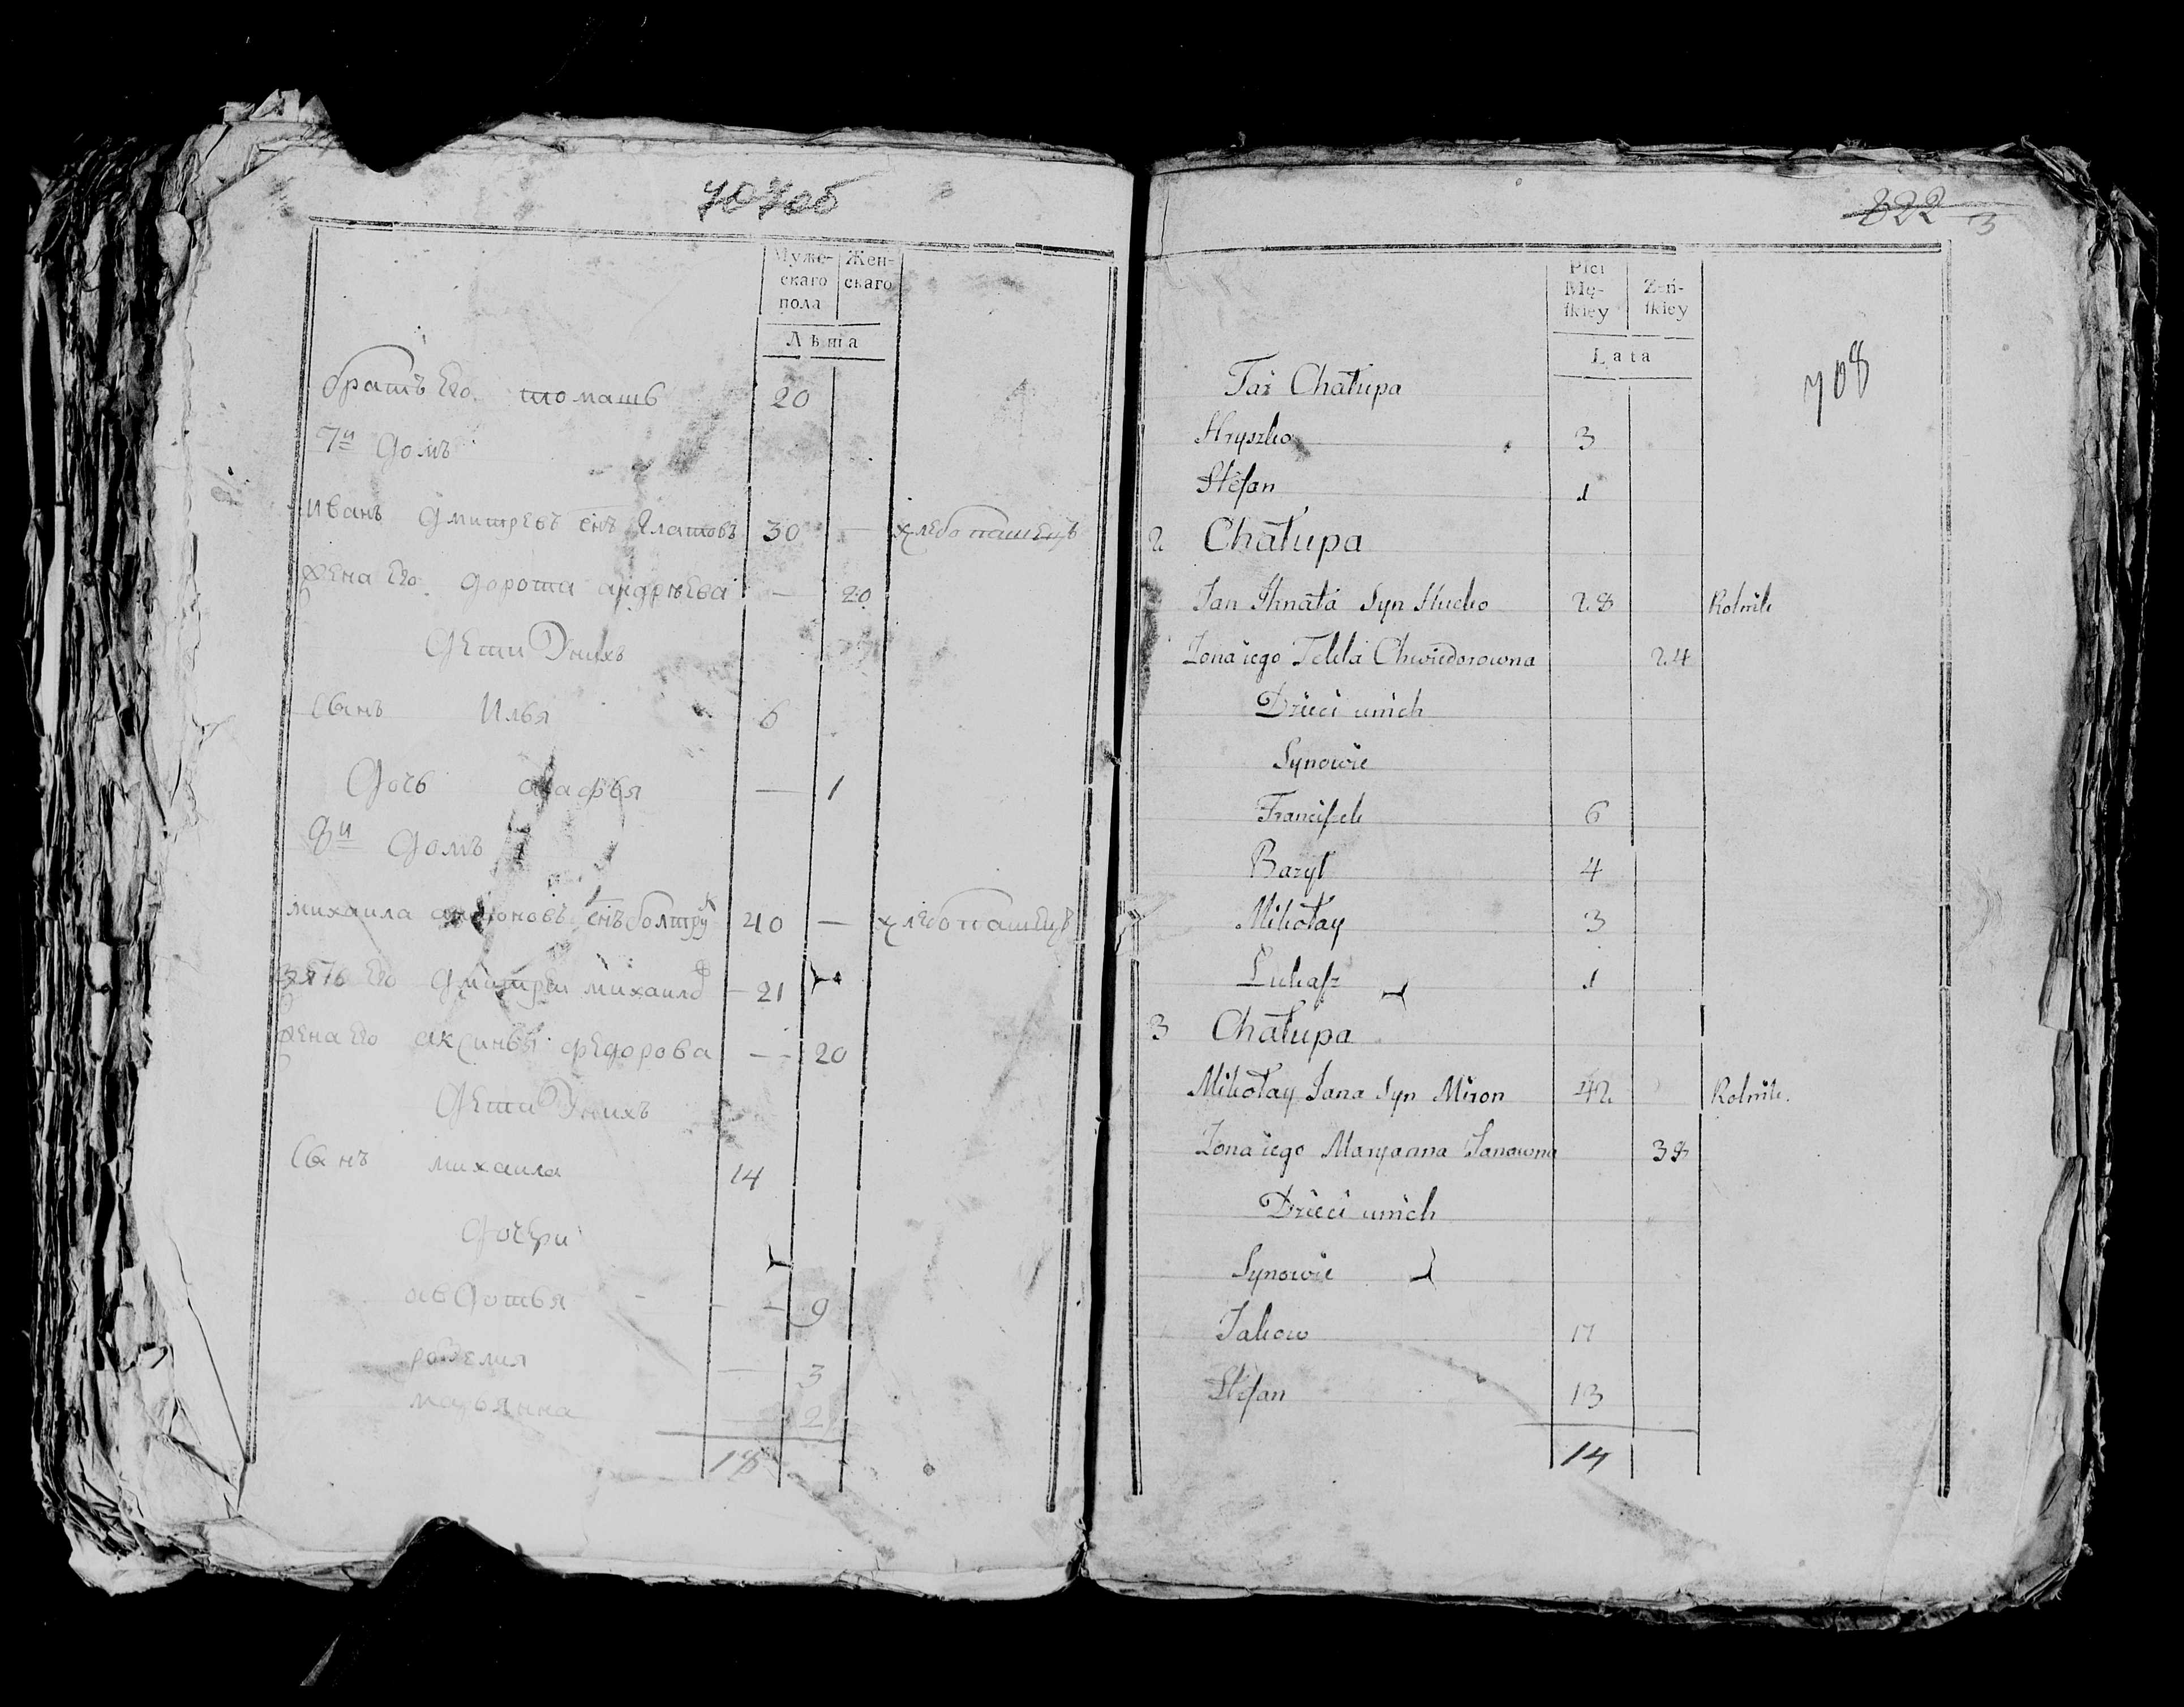 707об
Муже-
скаго
пола
Жен-
скаго
Лѣта
братъ Его томашъ 20
7й домъ
иванъ дмитревъ снъ Глатовъ 30 — хлебопашецъ
жена Его дорота андрѣева — 20
дети Унихъ
сынъ Илья 6
дочь агафья — 1
8й домъ
михаила антоновъ снъ болтру 40 — хлебопашецъ
зять Его дмитреи михаило 21
жена Его аксинья федорова — 20
дети Унихъ
сынъ михаила 14
дочери
авдотья — 9
3
марьянна 2
18
822
3
Płci
Mę-
ſkiey
Zeń-
ſkiey
Lata
708
Taż Chałupa
Hryszko 3
Stefan 1
2 Chałupa
Jan Ihnata Syn Hucko 28 Rolnik
Zona iego Tekla Chwiedorowna 24
Dzieci unich
Synowie
Franciſzek 6
Bazyl 4
Mikołay 3
Łukaſz 1
3 Chałupa
Mikołay Jana Syn Miron 42 Rolnik.
Zona iego Maryanna Janowna 38
Dzieci unich
Synowie
Jakow 17
Stefan 13
14